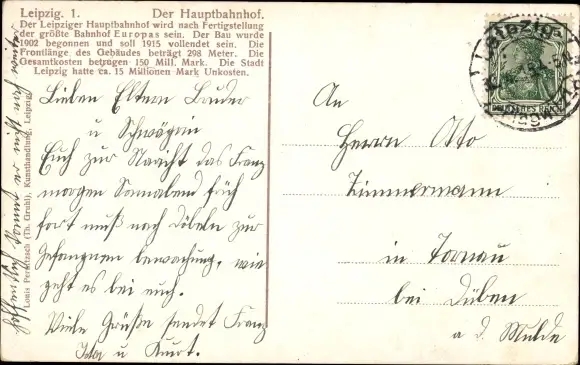 Leipzig. 1. Der Hauptbahnhof.
Der Leipziger Hauptbahnhof wird nach Fertigstellung
der größte Bahnhof Europas sein. Der Bau wurde
1902 begonnen und soll 1915 vollendet sein. Die
Frontlänge des Gebäudes beträgt 298 Meter. Die
Gesamtkosten betrugen 150 Mill. Mark. Die Stadt
Leipzig hatte ca. 15 Millionen Mark Unkosten.
Lieben Eltern Bruder
u Schwägrin
Euch zur Nachricht das Franz
morgen Sonnabend früh
fort muß nach Döbeln zur
Gefangnen bewachung, wie
geht es bei euch.
Viele Grüße sendet Franz
Ida u Kurt.
hoffentlich kommt er nicht noch weiter
Louis Pernitzsch (Th. Gruhl), Kunsthandlung, Leipzig.
An
Herrn Otto
Zimmermann
in Tornau
bei Düben
a d. Mulde
Leipzig